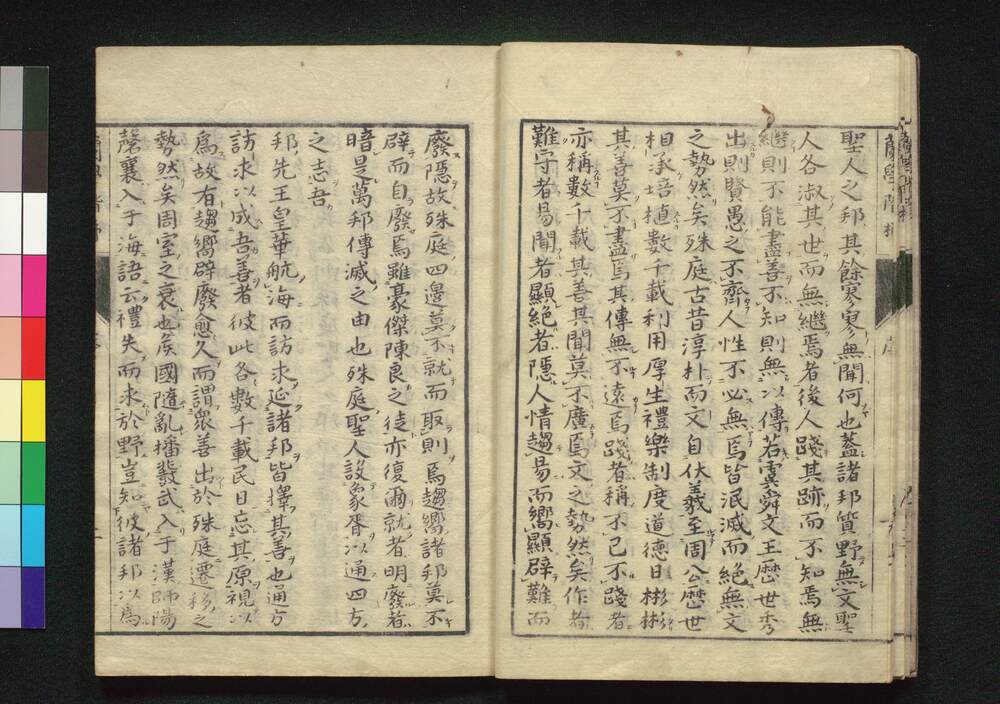 聖人之邦其餘寥寥無聞何也蓋諸邦質野無文聖
人各淑其世而無繼焉者後人踐其跡而不知焉無
繼則不能盡善不知則無以傳若虞舜文王歷世秀
出則賢愚之不齊人性不必無焉皆泯滅而絕無文
之勢然矣殊庭古昔淳朴而文自伏羲至周公歷世
相承培植數千載利用厚生禮樂制度道德日彬彬
其善莫不盡焉其傳無不遠焉踐者稱不已不踐者
亦稱數千載其善其聞莫不廣焉文之勢然矣作者
難守者易聞者顯絕者隱人情趨易而嚮顯辟難而
廢隱故殊庭四邊莫不就而取則焉趨嚮諸邦莫不
辟而自廢焉雖豪傑陳良之徒亦復爾就者明廢者
暗是萬邦傳滅之由也殊庭聖人設象胥以通四方
之志吾
邦先王皇華航海而訪求延諸邦皆擇其善也通方
訪求以成吾善者彼此各數千載民日忘其原視以
爲故有趨嚮辟廢愈久而謂衆善出於殊庭遷移之
勢然矣周室之衰也侯國隨亂播鼗武入于漢師陽
磬襄入于海語云禮失而求於野豈知彼諸邦以爲